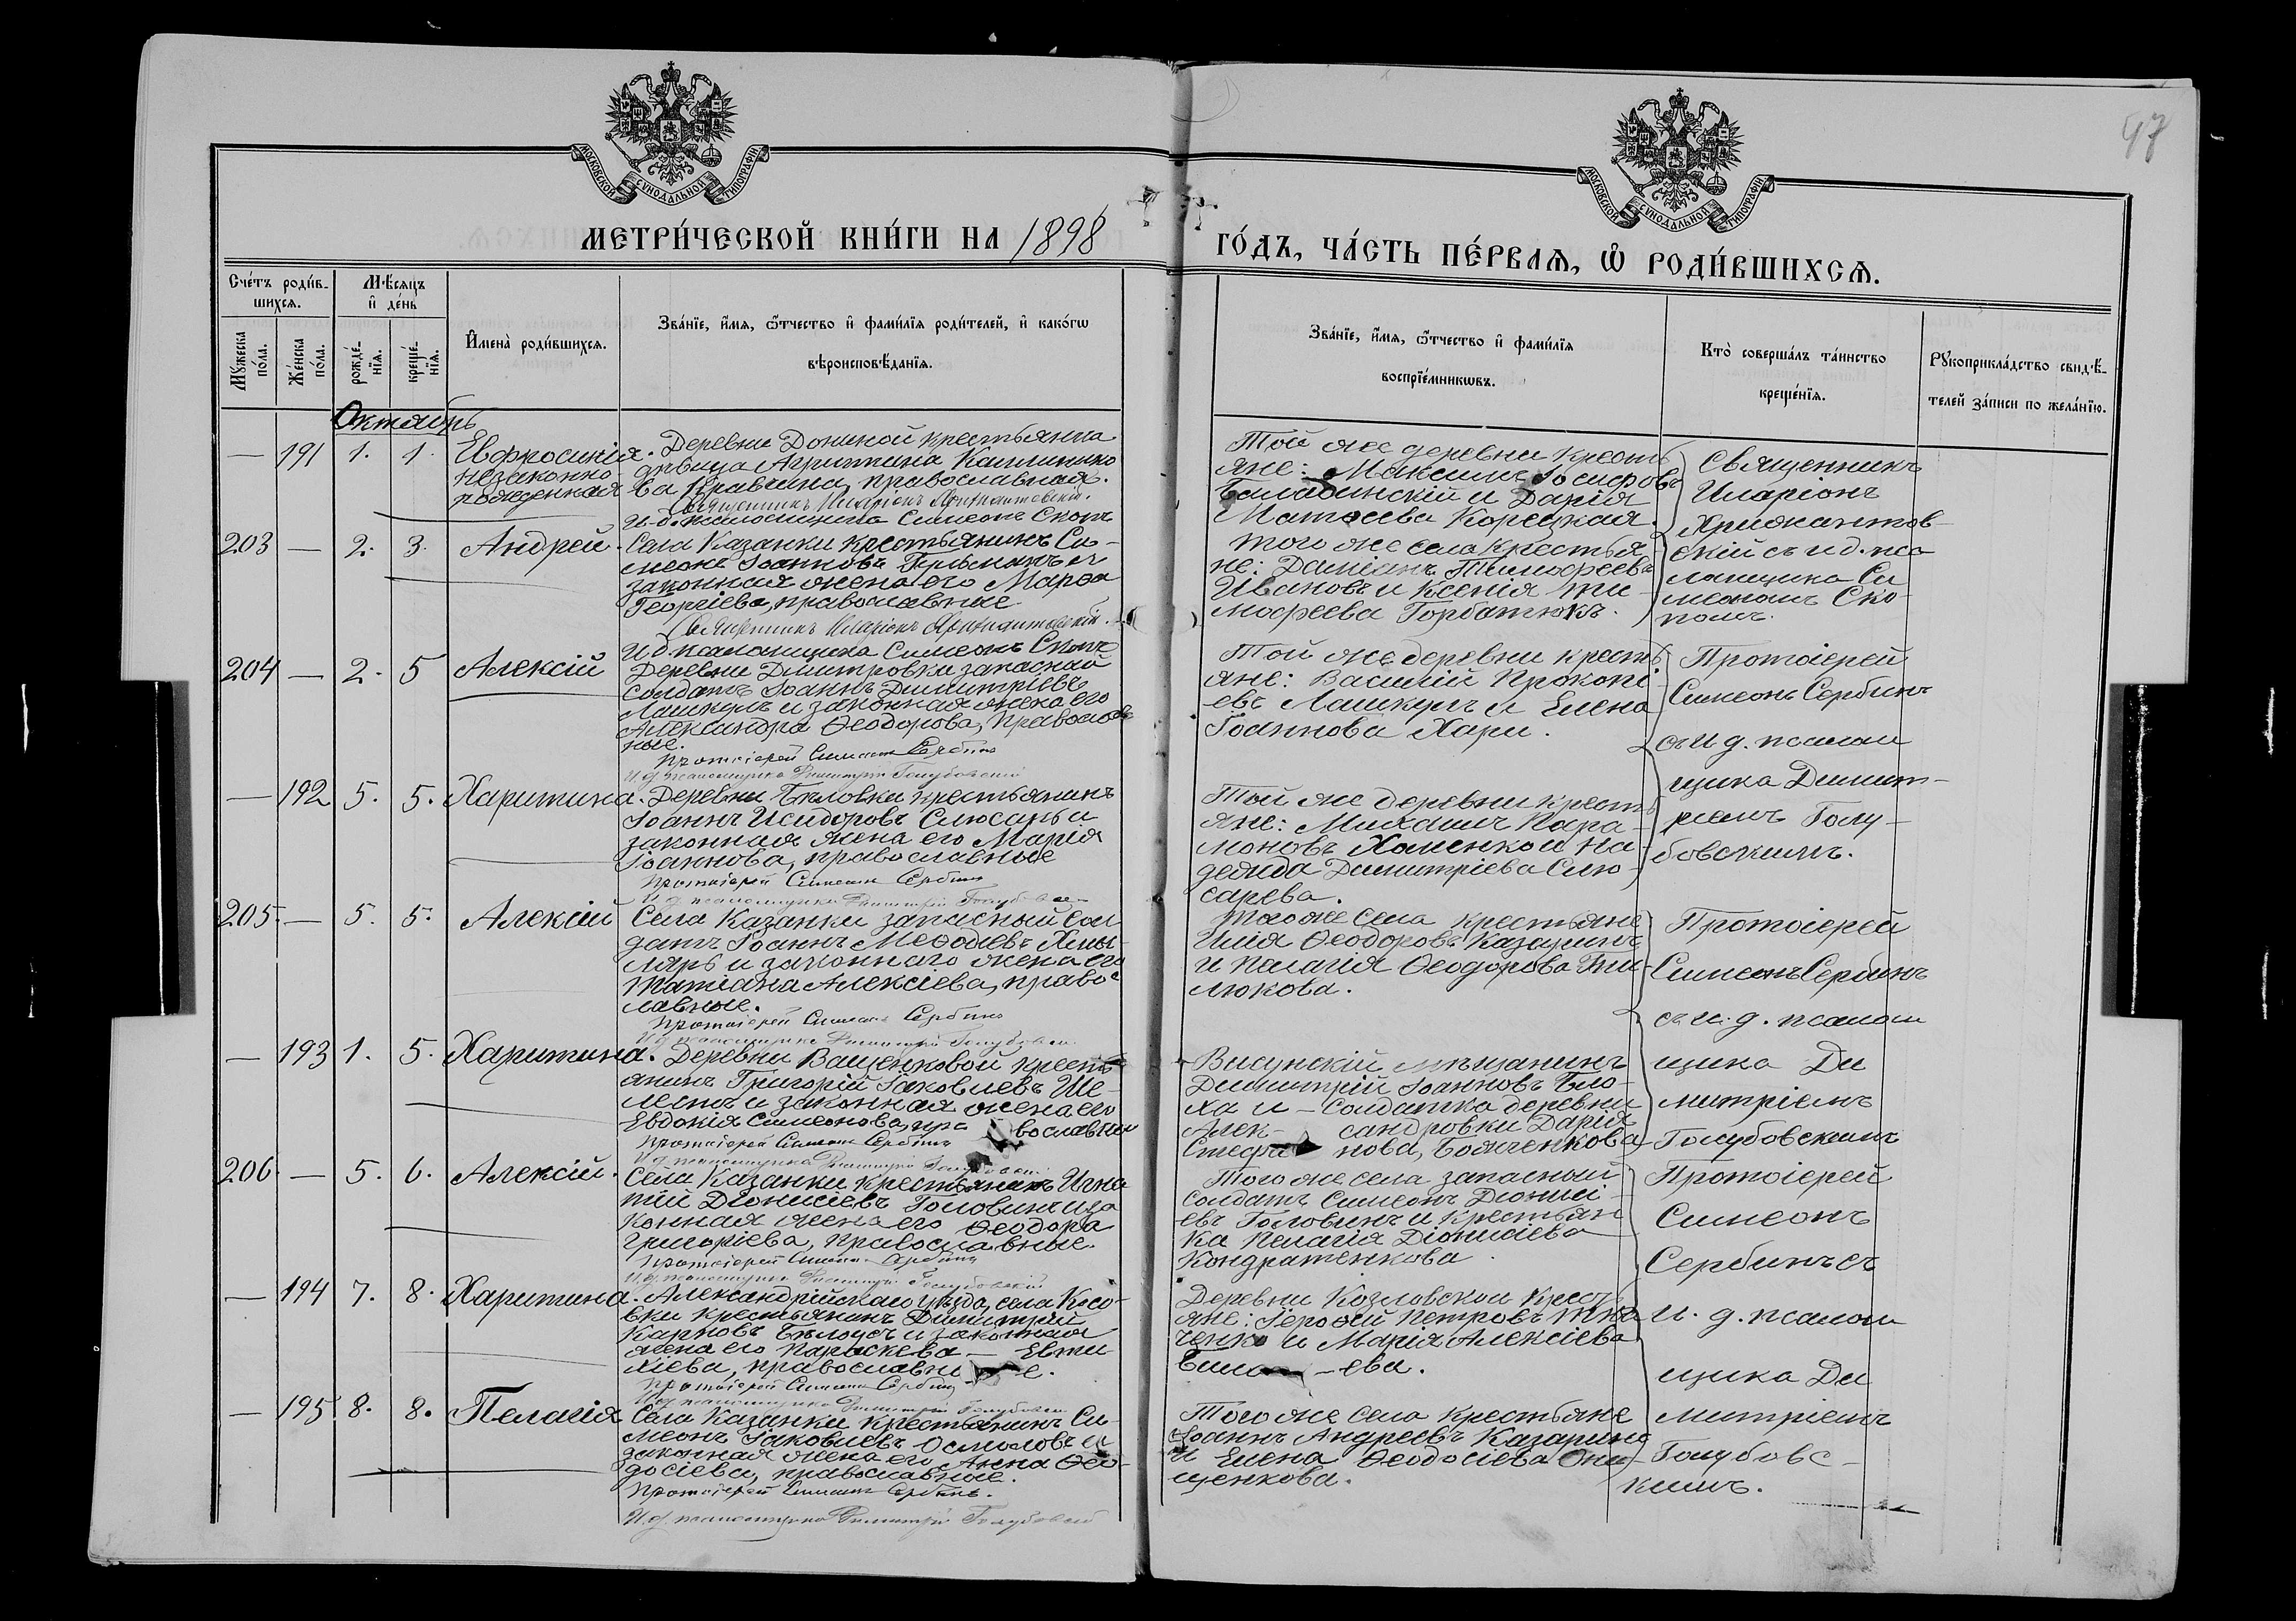 47
МОСКОВСКОЙ СѴНОДАЛЬНОЙ ТИПОГРАФІИ
МОСКОВСКОЙ СѴНОДАЛЬНОЙ ТИПОГРАФІИ
МЕТРИ́ЧЕСКОЙ КНИ́ГИ НА 1898 ГО́ДЪ, ЧА́СТЬ ПЕ́РВАѦ, Ѡ҆ РОДИ́ВШИХСѦ.
Сче́тъ роди́в-
шихсѧ.
Мѣ́сѧцъ
и҆ де́нь
Мꙋ́жеска
по́ла.
Же́нска
по́ла.
рожде́-
нїѧ.
креще́-
нїѧ.
И҆мена̀ роди́вшихсѧ.
Зва́нїе, и҆́мѧ, ѻ҆́тчество и҆ фами́лїѧ роди́телей, и҆ како́гѡ
вѣроисповѣ́данїѧ.
Зва́нїе, и҆́мѧ, ѻ҆́тчество и҆ фами́лїѧ
воспрїе́мникѡвъ.
Кто̀ соверша́лъ та́инство
креще́нїѧ.
Рꙋкоприкла́дство свидѣ́-
телей за́писи по жела́нїю.
Октябрь
— 191 1. 1. Евфросинія
незаконно-
рожденная
Деревни Дониной крестьянка
дѣвица Агрипина Каллинико
ва Кравчина, православная.
Священникъ Иларіонъ
И. д. псаломщика Симеонъ Скопъ
Той же деревни кресть
яне: Максимъ Іосифовъ
Балабинскій и Дарія
Матѳеева Корецкая.
Священникъ
Иларіонъ
203 — 2. 3. Андрей.
Села Казанки крестьянинъ Си-
меонъ Іоанновъ и
законная жена его Марѳа
Георгіева, православные
Священникъ Иларіонъ
И. д. псаломщика Симеонъ Скопъ
того же села крестья
не: Даміанъ Тимофеевъ
Ивановъ и Ксенія Ти-
мофеева Горбатюкъ.
скій съ и. д. пса
ломщика Си
меономъ Ско-
помъ.
204 — 2. 5 Алексій
Деревни Димитровки запасный
солдатъ Іоаннъ Димитріевъ
Лашкулъ и законная жена его
Александра Ѳеодорова, православ
ные.
Протоіерей Симеонъ Сербинъ
И. д. псаломщика Димитрій Голубовскій
Той же деревни кресть
яне: Василій Прокопі-
евъ Лашкулъ и Елена
Іоаннова Хари.
Протоіерей
Симеонъ Сербинъ
съ и д. псалом
щика Димит-
ріемъ Голу-
бовскимъ.
— 192 5. 5. Харитина.
Деревни Бѣловки крестьянинъ
Іоаннъ Исидоровъ Слюсарь и
законная жена его Марія
Іоаннова, православные
Протоіерей Симеонъ Сербинъ
И. д. псаломщика Димитрій
Той же деревни кресть
яне: Михаилъ Пара-
моновъ Хоменко и На-
дежда Димитріева Слю-
сарева.
205. — 5. 5. Алексій
Села Казанки запасный сол
датъ Іоаннъ Меѳодіевъ
и законного жена его
Татіана Алексіева, правос
лавные.
Протоіерей Симеонъ Сербинъ
И. д. псаломщика Димитрій
Того же села крестьяне
Илія Ѳеодоровъ Казаринъ
и Пелагія Ѳеодорова
люкова.
Протоіерей
Симеонъ Сербинъ
съ и. д. псалом
щика Ди
митріемъ
Голубовскимъ
— 193 1. 5. Харитина.
Деревни Ващенковой крест
янинъ Григорій Іаковлевъ Ше-
лестъ и законная жена его
Евдокія Симеонова, пра вославные
Протоіерей Симеонъ Сербинъ
И. д. псаломщика Димитрій
Висунскій мѣщанинъ
Димитрій Іоанновъ Бло-
ха и – солдатка деревни
Алек- сандровки Дарія
Стефа нова, Боженкова
206. — 5. 6. Алексій.
Села Казанки крестьянинъ Игна
тій Діонисіевъ Головинъ и за
конная жена его Ѳеодора
Григоріева, православные
Протоіерей Симеонъ Сербинъ
И. д. псаломщика Димитрій Голубовскій
Того же села запасный
солдатъ Симеонъ Діониси-
евъ Головинъ и крестьян
ка Пелагія Діонисіева
Кондратенкова
Протоіерей
Симеонъ
Сербинъ съ
и. д. псалом
щика Ди
митріемъ
Голубовс-
кимъ.
— 194 7. 8. Харитина.
Александрійскаго уѣзда, села Косо-
вки крестьянинъ Димитрій
Карповъ Бѣлоусъ и законная
жена его Параскева – Евти-
хіева, православны е.
Протоіерей Симеонъ Сербинъ
Деревни Козловской крест
яне: Іероѳей Петровъ Тка
ченко и Марія Алексіева
– ева.
— 195 8. 8. Пелагія
Села Казанки крестьянинъ Си-
меонъ Іаковлевъ Осмоловъ и
законная жена его Анна Ѳео-
досіева, православные.
Протоіерей Симеонъ Сербинъ.
И. д. псаломщика Димитрій Голубовскій
Того же села крестьяне
Іоаннъ Андреевъ Казаринъ
и Елена Ѳеодосіева Они-
щенкова.